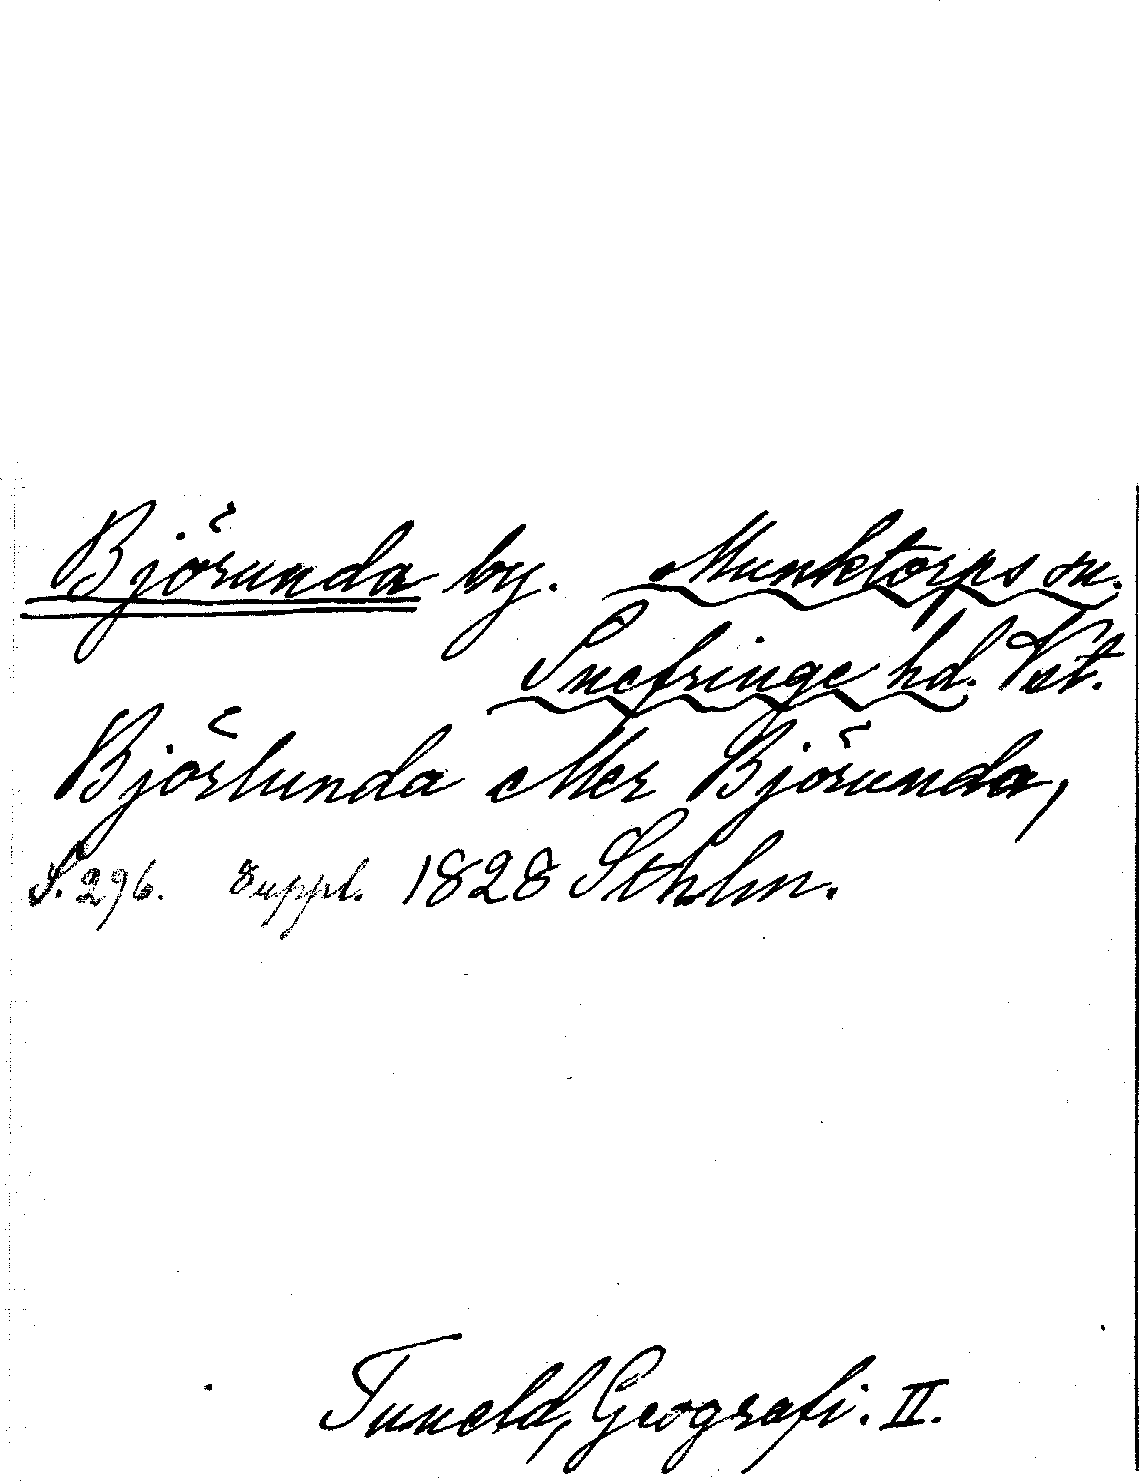 Björunda by. Munktorps sn.
Snefringe hd. Vst.
Björlunda eller Björunda,
S. 296. Suppl. 1828 Sthlm.
Tuneld, Geografi. II.